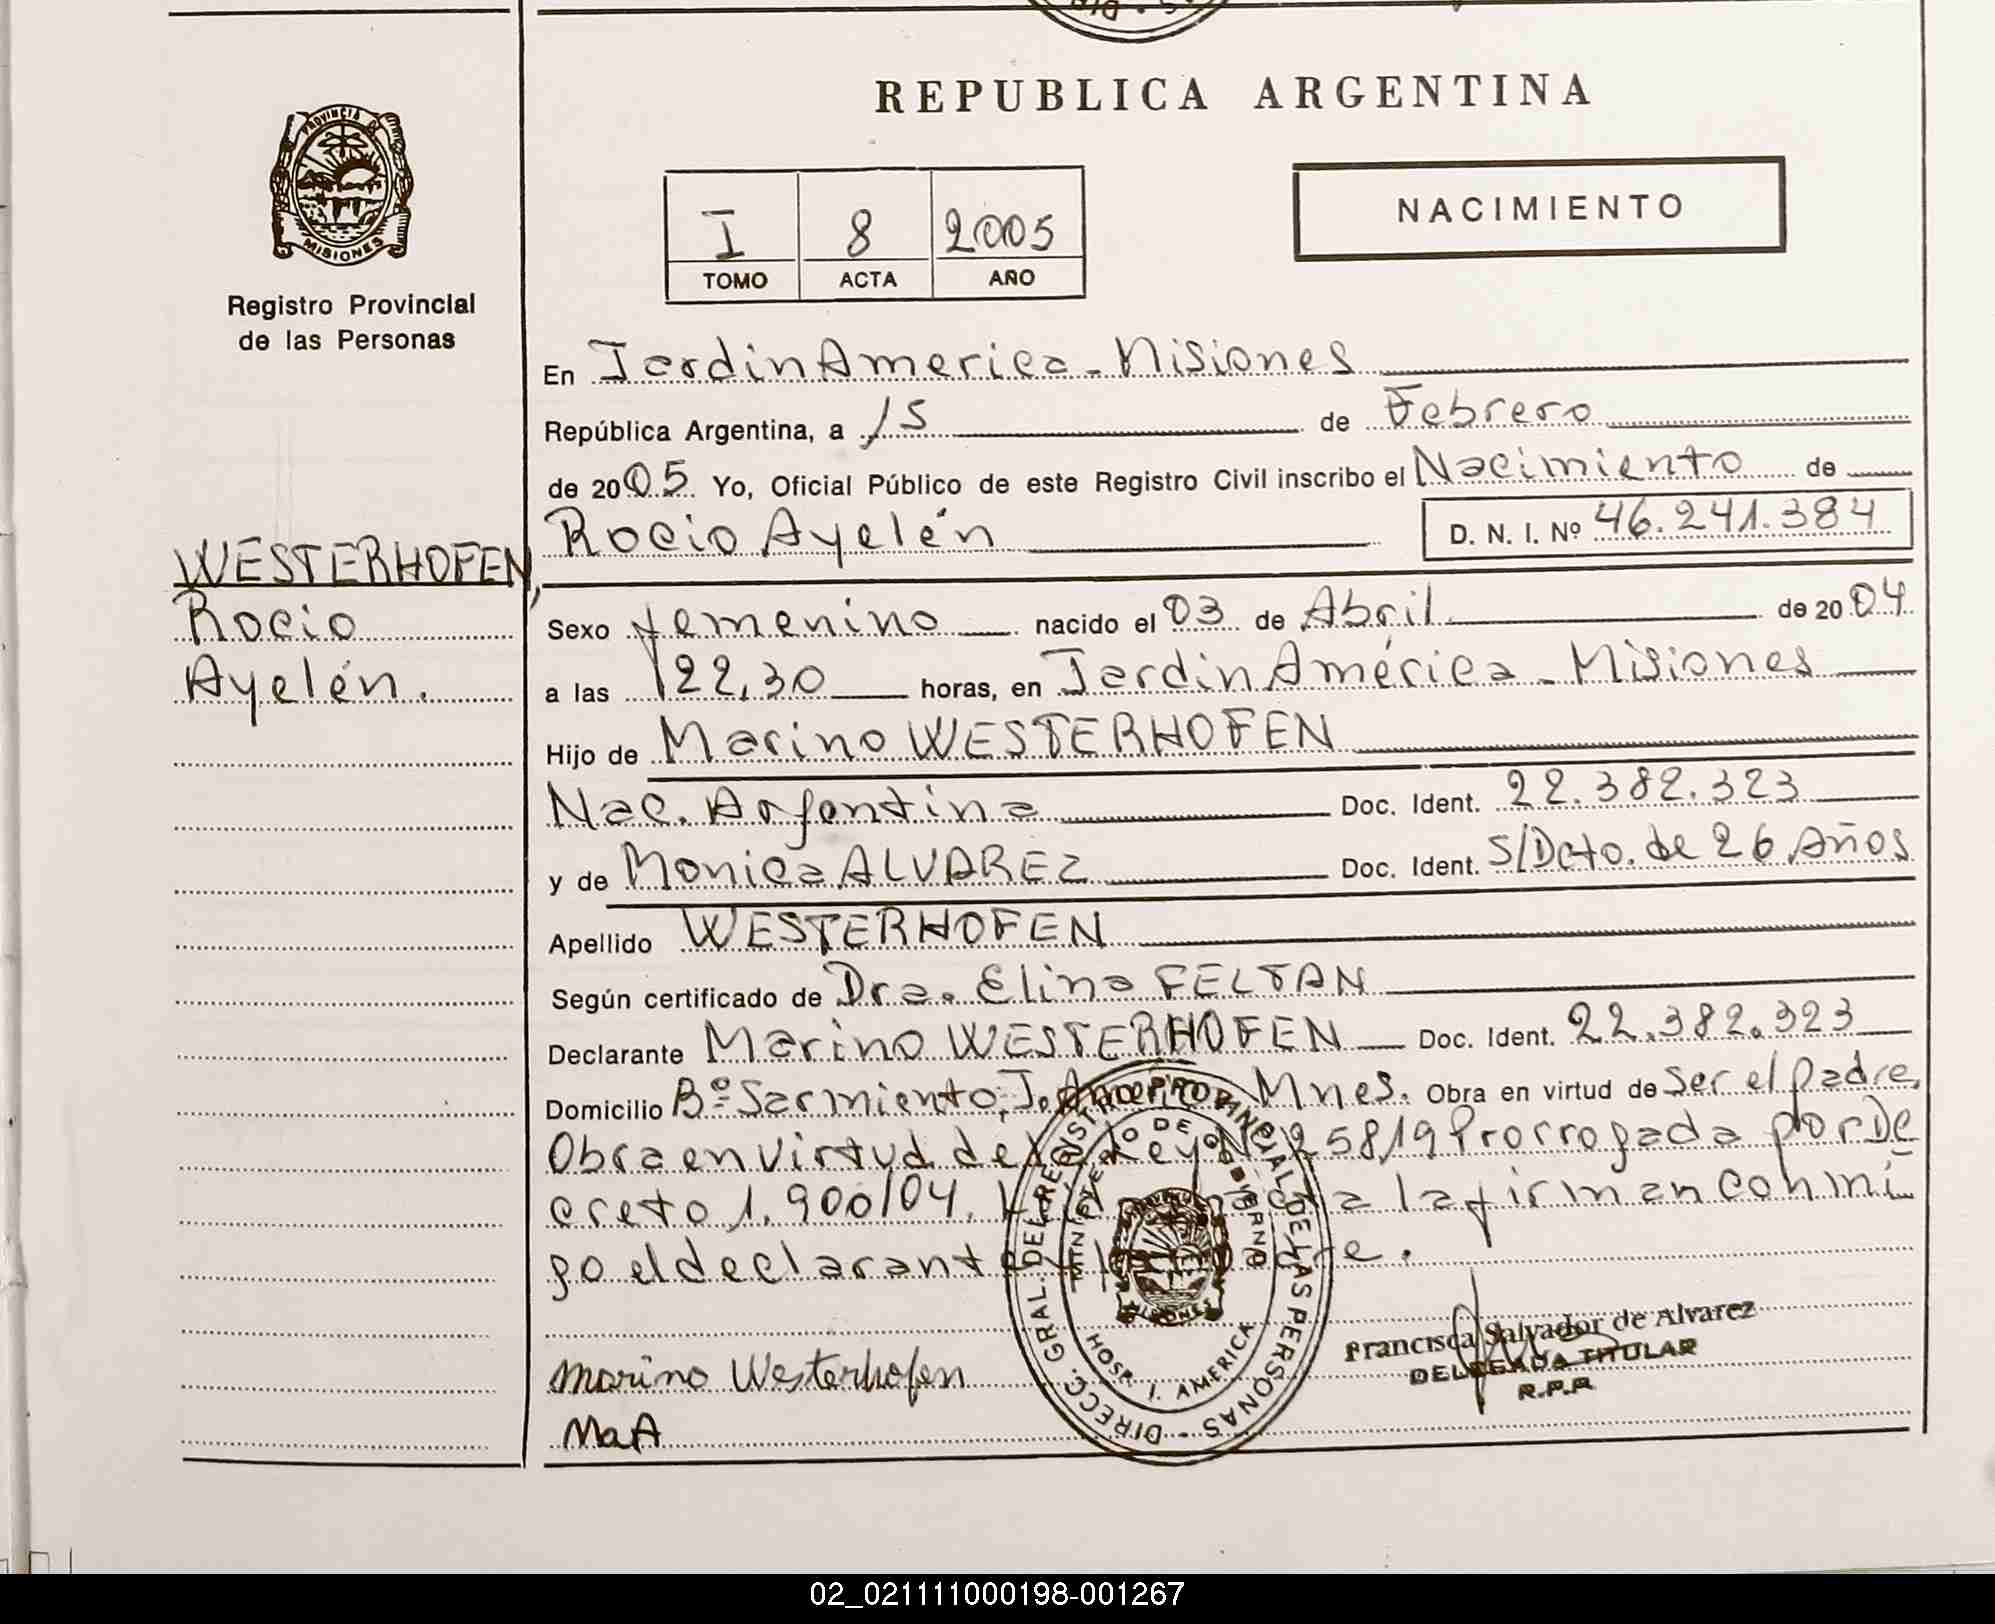 REPUBLICA ARGENTINA
PROVINCIA DE
MISIONES
Registro Provincial
de las Personas
I 8 2005
TOMO ACTA AÑO
NACIMIENTO
En Jardin America - Misiones
República Argentina, a 15 de Febrero
de 2005 Yo, Oficial Público de este Registro Civil inscribo el Nacimiento de
Rocio Ayelén D. N. I. Nº 46.241.384
WESTERHOFEN,
Rocio
Ayelén.
Sexo femenino nacido el 03 de Abril de 2004
a las 22,30 horas, en Jardin América - Misiones
Hijo de Marino WESTERHOFEN
Nac. Argentina Doc. Ident. 22.382.323
y de Monica ALVAREZ Doc. Ident. S/Dcto. de 26 Años
Apellido WESTERHOFEN
Según certificado de Dra. Elina FELTAN
Declarante Marino WESTERHOFEN Doc. Ident. 22.382.323
Domicilio Bº Sarmiento, J. América Mnes. Obra en virtud de Ser el padre.
Obra en virtud de Ley Nº 25819 Prorrogada por De
creto 1.900/04. la firman con mi
go el declarante
Marino Westerhofen
MaA
DIRECC. GRAL. DEL REGISTRO PROVINCIAL DE LAS PERSONAS
MINISTERIO DE GOBIERNO
HOSP. J. AMERICA
Francisca Salvador de Alvarez
DELEGADA TITULAR
R.P.P.
02_021111000198-001267